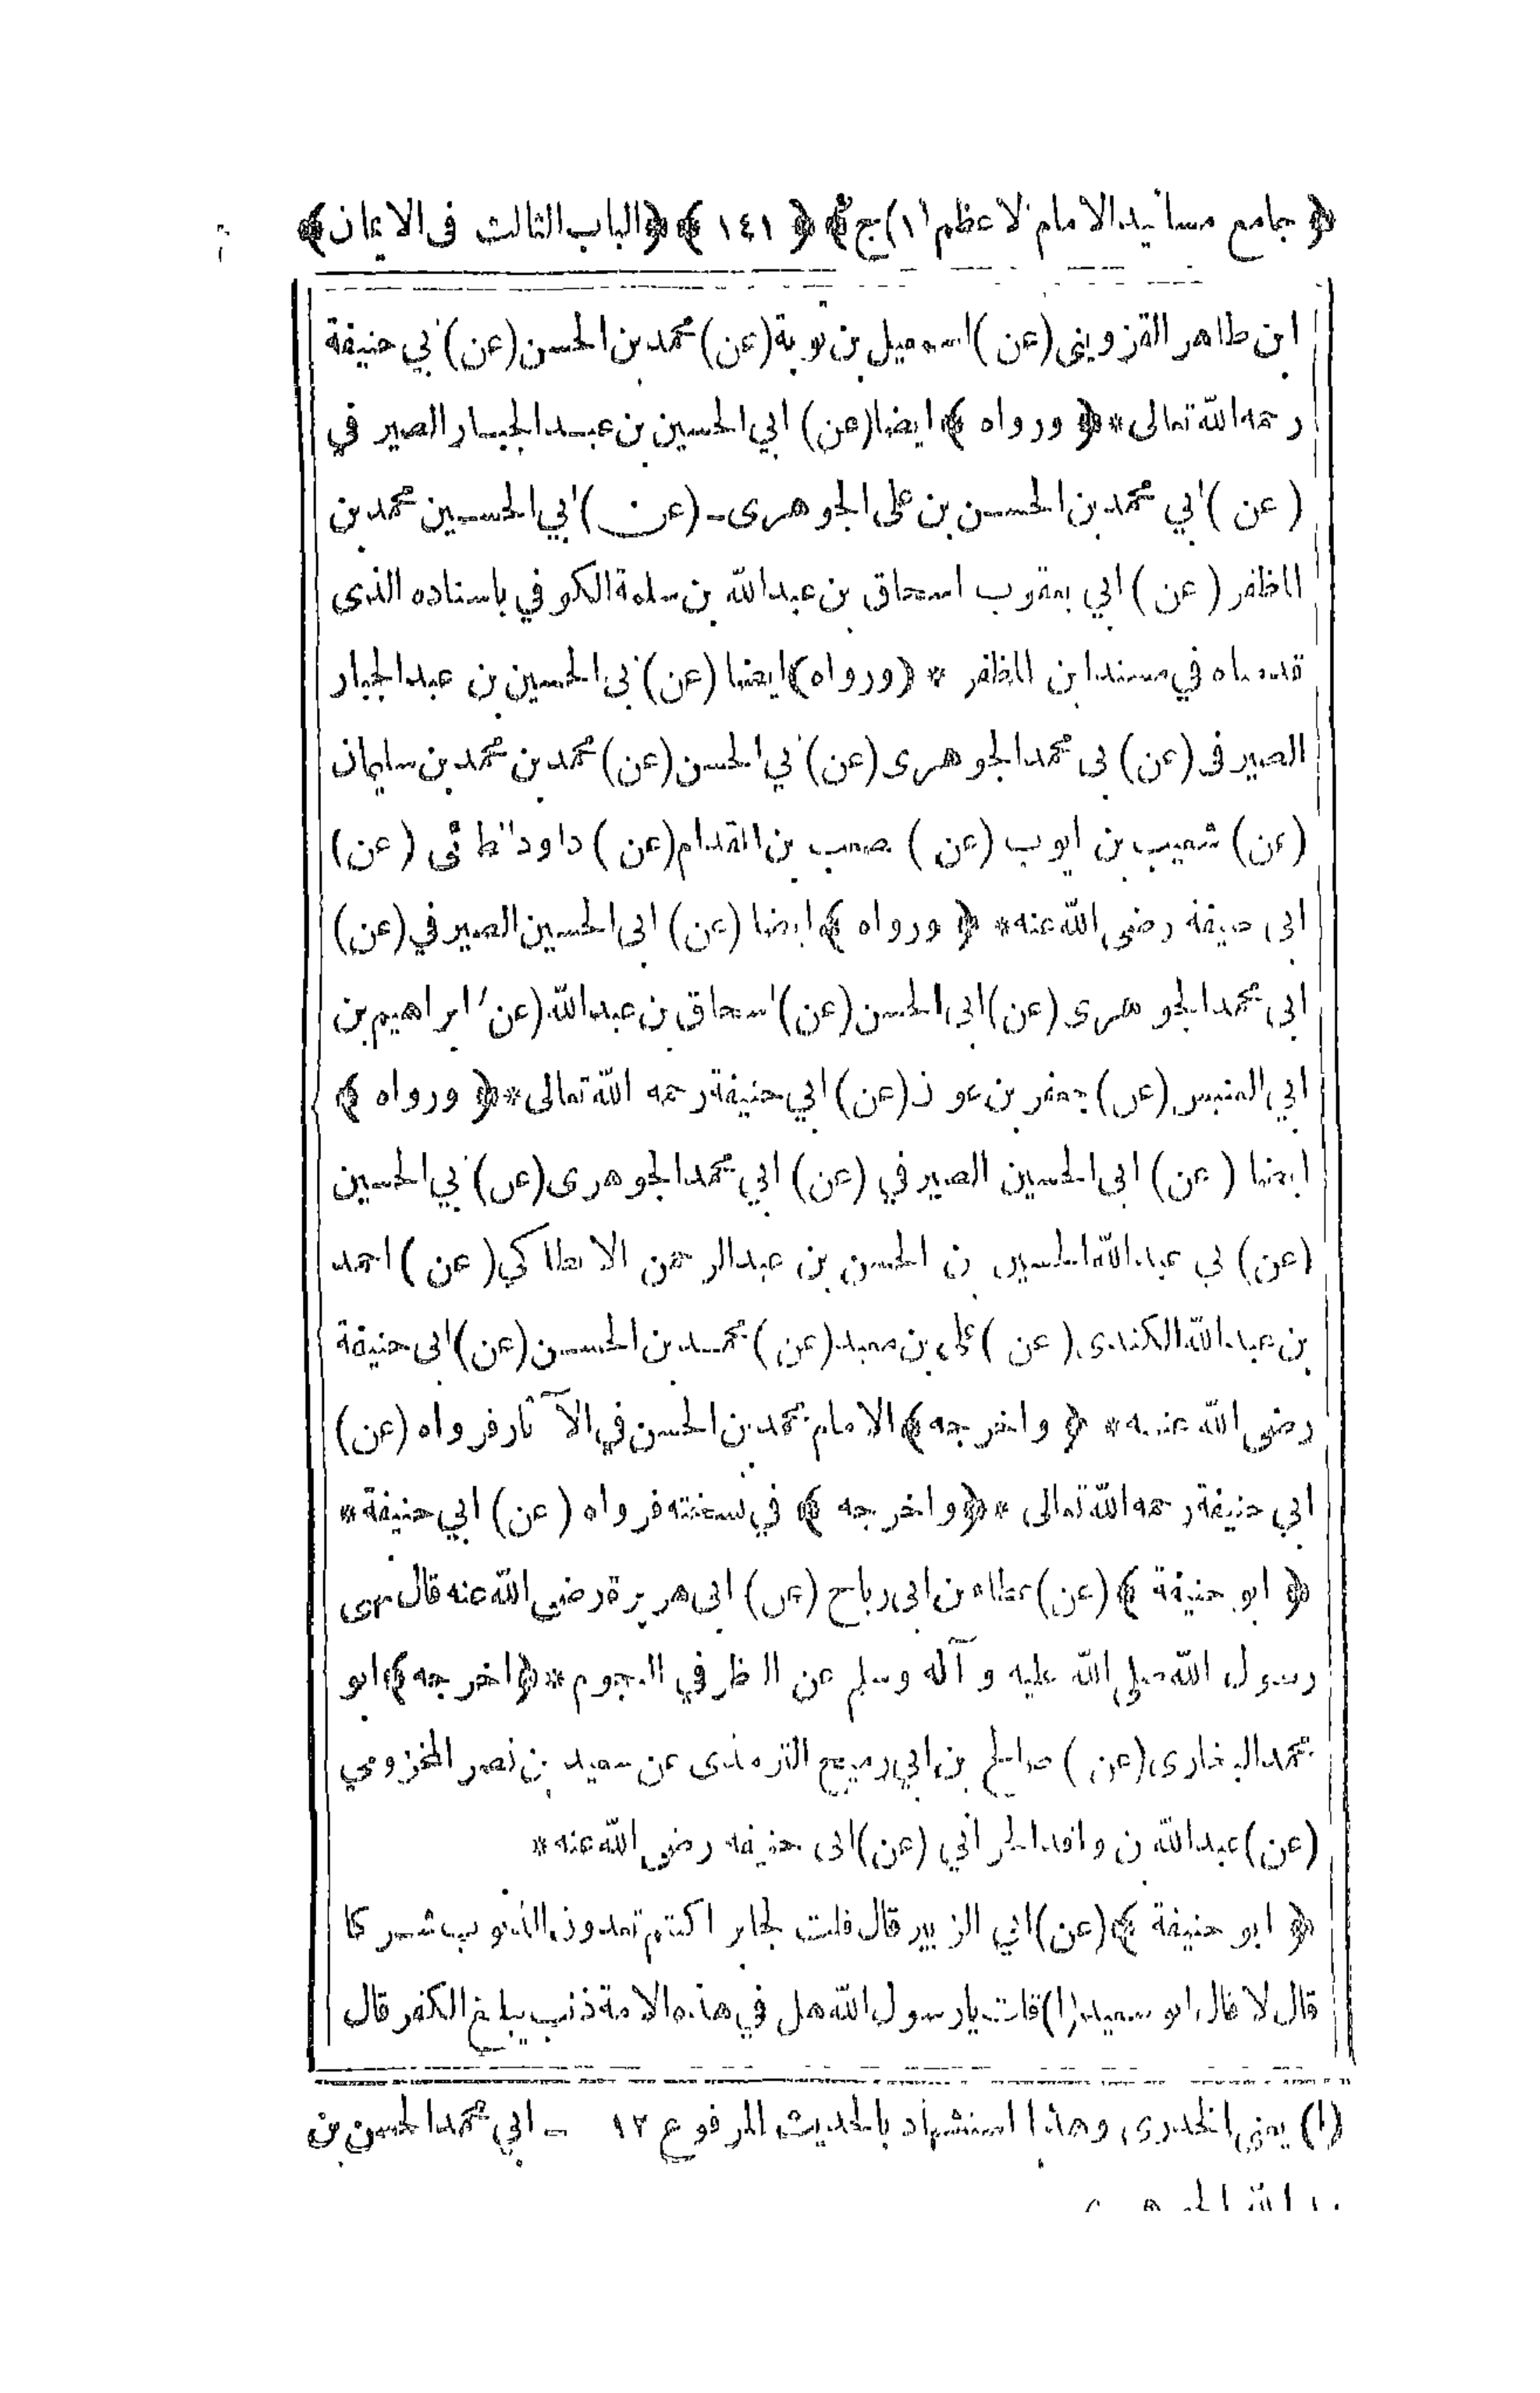 ﴿ جامع مسانيد الامام الاعظم (١) ج ﴾ ﴿ ١٤١ ﴾ ﴿ الباب الثالث فى الايمان ﴾
ابن طاهر القزوينى (عن) اسمعيل بن توبة (عن) محمد بن الحسن (عن) ابي حنيفة
رحمه الله تعالى * ﴿ ورواه ﴾ ايضا (عن) ابي الحسين بن عبد الجبار الصير في
(عن) ابي محمد بن الحسن بن على الجوهرى - (عن) ابي الحسين محمد بن
المظفر (عن) ابي يعقوب اسحاق بن عبد الله بن سلمة الكوفي باسناده الذى
قدمناه في مسند ابن المظفر * ﴿ ورواه ﴾ ايضا (عن) ابى الحسين بن عبد الجبار
الصير فى (عن) ابى محمد الجوهرى (عن) ابي الحسن (عن) محمد بن محمد بن سليمان
(عن) شعيب بن ايوب (عن) مصعب بن المقدام (عن) داود الطائى (عن)
ابى حنيفة رضى الله عنه * ﴿ ورواه ﴾ ايضا (عن) ابى الحسين الصير في (عن)
ابى محمد الجوهرى (عن) ابى الحسن (عن) اسحاق بن عبد الله (عن) ابراهيم بن
ابي العنبس (عن) جعفر بن عون (عن) ابي حنيفة رحمه الله تعالى * ﴿ ورواه ﴾
ايضا (عن) ابى الحسين الصير في (عن) ابي محمد الجوهرى (عن) ابي الحسين
(عن) ابي عبد الله الحسين بن الحسن بن عبد الرحمن الانطاكي (عن) احمد
بن عبد الله الكندى (عن) على بن معبد (عن) محمد بن الحسن (عن) ابى حنيفة
رضى الله عنه * ﴿ واخرجه ﴾ الامام محمد بن الحسن في الآثار فرواه (عن)
ابي حنيفة رحمه الله تعالى * ﴿ واخرجه ﴾ في نسخته فرواه (عن) ابي حنيفة *
﴿ ابو حنيفة ﴾ (عن) عطاء بن ابى رباح (عن) ابى هريرة رضى الله عنه قال نهى
رسول الله صلى الله عليه وآله وسلم عن النظر في النجوم * ﴿ اخرجه ﴾ ابو
محمد البخارى (عن) صالح بن ابي رميح الترمذى عن سعيد بن نصر المخزومي
(عن) عبد الله بن واقد الحراني (عن) ابى حنيفه رضى الله عنه *
﴿ ابو حنيفة ﴾ (عن) ابي الزبير قال قلت لجابر اكنتم تعدون الذنوب شركا
قال لا قال ابو سعيد (١) قلت يا رسول الله هل في هذه الامة ذنب يبلغ الكفر قال
(١) يعنى الخدرى وهذا استشهاد بالحديث المرفوع ١٢ - ابي محمد الحسن بن